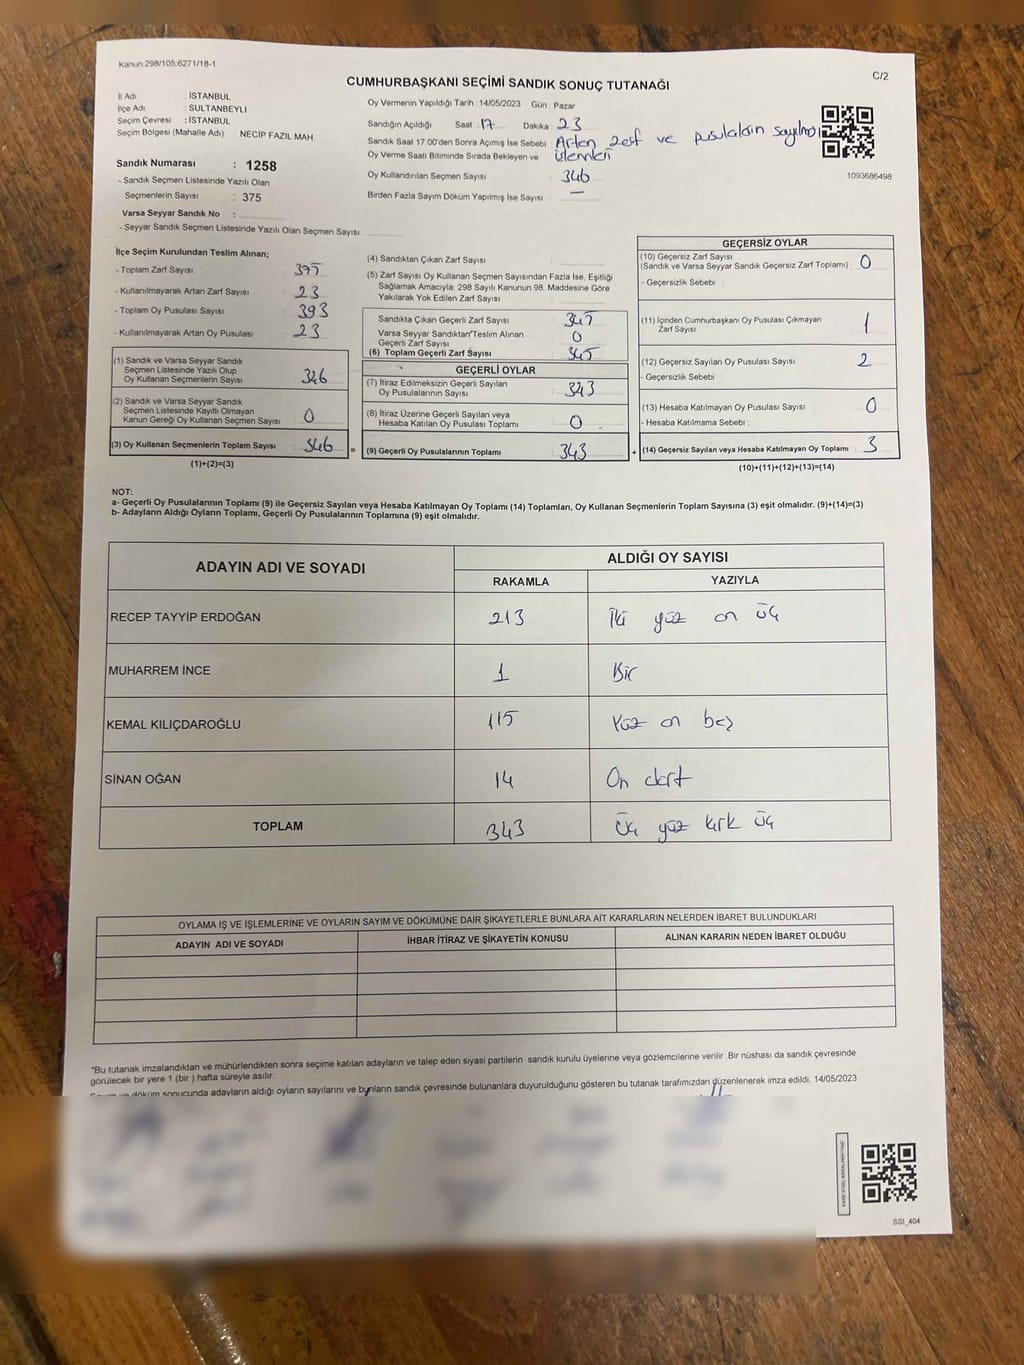 Kanun:298/105;6271/18-1
C/2
CUMHURBAŞKANI SEÇİMİ SANDIK SONUÇ TUTANAĞI
İl Adı : İSTANBUL
İlçe Adı : SULTANBEYLİ
Seçim Çevresi : İSTANBUL
Seçim Bölgesi (Mahalle Adı) : NECİP FAZIL MAH.
Sandık Numarası : 1258
- Sandık Seçmen Listesinde Yazılı Olan
Seçmenlerin Sayısı : 375
Varsa Seyyar Sandık No :
- Seyyar Sandık Seçmen Listesinde Yazılı Olan Seçmen Sayısı :
Oy Vermenin Yapıldığı Tarih : 14/05/2023 Gün : Pazar
Sandığın Açıldığı Saat 17 Dakika 23
Sandık Saat 17.00'den Sonra Açımış İse Sebebi : Artan zarf ve pusulaların sayılması
Oy Verme Saati Bitiminde Sırada Bekleyen ve işlemleri
Oy Kullandırılan Seçmen Sayısı : 346
Birden Fazla Sayım Döküm Yapılmış İse Sayısı : —
1093686498
İlçe Seçim Kurulundan Teslim Alınan;
- Toplam Zarf Sayısı :
- Kullanılmayarak Artan Zarf Sayısı : 23
- Toplam Oy Pusulası Sayısı : 393
- Kullanılmayarak Artan Oy Pusulası : 23
(1) Sandık ve Varsa Seyyar Sandık
Seçmen Listesinde Yazılı Olup
Oy Kullanan Seçmenlerin Sayısı : 346
(2) Sandık ve Varsa Seyyar Sandık
Seçmen Listesinde Kayıtlı Olmayan
Kanun Gereği Oy Kullanan Seçmen Sayısı : 0
(3) Oy Kullanan Seçmenlerin Toplam Sayısı : 346
(1)+(2)=(3)
(4) Sandıktan Çıkan Zarf Sayısı :
(5) Zarf Sayısı Oy Kullanan Seçmen Sayısından Fazla İse, Eşitliği
Sağlamak Amacıyla, 298 Sayılı Kanunun 98. Maddesine Göre
Yakılarak Yok Edilen Zarf Sayısı :
Sandıkta Çıkan Geçerli Zarf Sayısı :
Varsa Seyyar Sandıktan Teslim Alınan
Geçerli Zarf Sayısı : 0
(6) Toplam Geçerli Zarf Sayısı : 345
GEÇERLİ OYLAR
(7) İtiraz Edilmeksizin Geçerli Sayılan
Oy Pusulalarının Sayısı : 343
(8) İtiraz Üzerine Geçerli Sayılan veya
Hesaba Katılan Oy Pusulası Toplamı : 0
= (9) Geçerli Oy Pusulalarının Toplamı : 343
GEÇERSİZ OYLAR
(10) Geçersiz Zarf Sayısı
(Sandık ve Varsa Seyyar Sandık Geçersiz Zarf Toplamı) : 0
- Geçersizlik Sebebi :
(11) İçinden Cumhurbaşkanı Oy Pusulası Çıkmayan
Zarf Sayısı : 1
(12) Geçersiz Sayılan Oy Pusulası Sayısı : 2
- Geçersizlik Sebebi :
(13) Hesaba Katılmayan Oy Pusulası Sayısı : 0
- Hesaba Katılmama Sebebi :
+ (14) Geçersiz Sayılan veya Hesaba Katılmayan Oy Toplamı : 3
(10)+(11)+(12)+(13)=(14)
NOT:
a- Geçerli Oy Pusulalarının Toplamı (9) ile Geçersiz Sayılan veya Hesaba Katılmayan Oy Toplamı (14) Toplamları, Oy Kullanan Seçmenlerin Toplam Sayısına (3) eşit olmalıdır. (9)+(14)=(3)
b- Adayların Aldığı Oyların Toplamı, Geçerli Oy Pusulalarının Toplamına (9) eşit olmalıdır.
ADAYIN ADI VE SOYADI
ALDIĞI OY SAYISI
RAKAMLA YAZIYLA
RECEP TAYYİP ERDOĞAN 213 İki yüz on üç
MUHARREM İNCE 1 Bir
KEMAL KILIÇDAROĞLU 115 Yüz on beş
SİNAN OĞAN 14 On dört
TOPLAM 343 Üç yüz kırk üç
OYLAMA İŞ VE İŞLEMLERİNE VE OYLARIN SAYIM VE DÖKÜMÜNE DAİR ŞİKAYETLERLE BUNLARA AİT KARARLARIN NELERDEN İBARET BULUNDUKLARI
ADAYIN ADI VE SOYADI İHBAR İTİRAZ VE ŞİKAYETİN KONUSU ALINAN KARARIN NEDEN İBARET OLDUĞU
"Bu tutanak imzalandıktan ve mühürlendikten sonra seçime katılan adayların ve talep eden siyasi partilerin sandık kurulu üyelerine veya gözlemcilerine verilir. Bir nüshası da sandık çevresinde
görülecek bir yere 1 (bir ) hafta süreyle asılır.
Sayım ve döküm sonucunda adayların aldığı oyların sayılarını ve bunların sandık çevresinde bulunanlara duyurulduğunu gösteren bu tutanak tarafımızdan düzenlenerek imza edildi. 14/05/2023
SSI_404